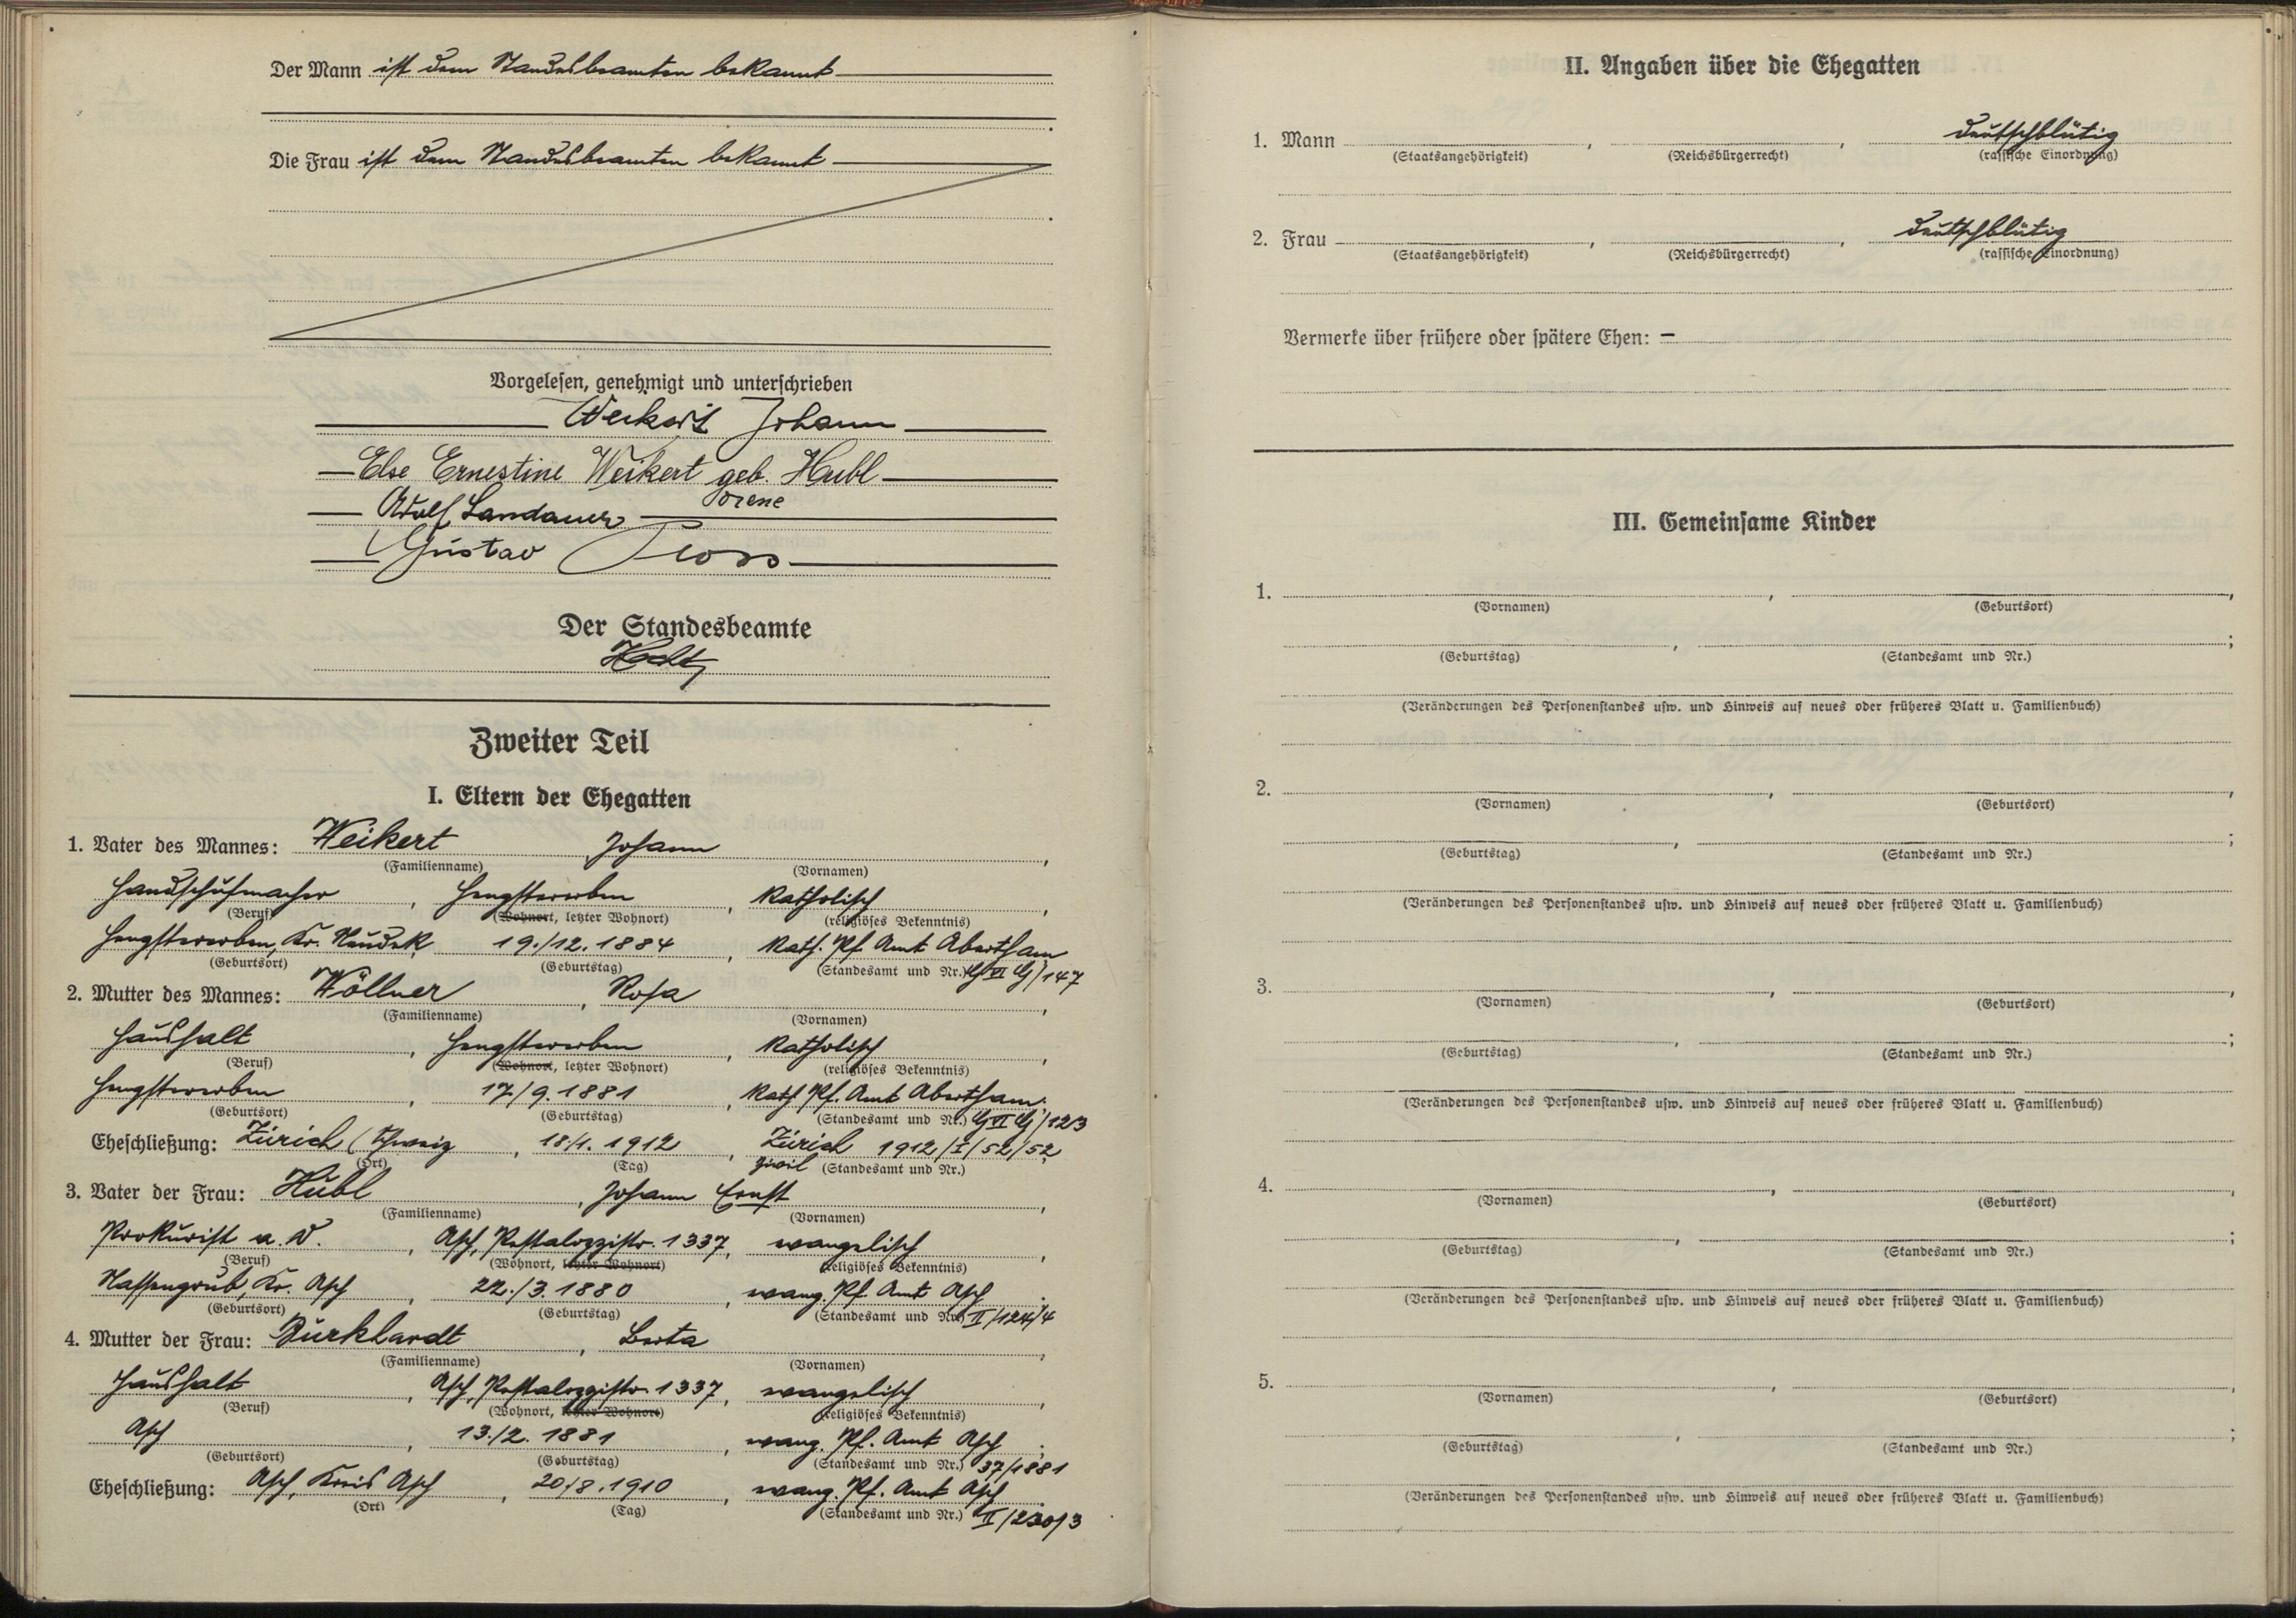 Der Mann ist dem Standesbeamten bekannt
Die Frau ist dem Standesbeamten bekannt
Vorgelesen, genehmigt und unterschrieben
Weikert Johann
Else Ernestine Weikert geb. Hubl
Adolf Landauer
Gustav Ploss
Der Standesbeamte
Zweiter Teil
I. Eltern der Ehegatten
1. Vater des Mannes: Weikert Johann,
(Familienname) (Vornamen)
Handschuhmacher, Hengstererben, katholisch,
(Beruf) (Wohnort, letzter Wohnort) (religiöses Bekenntnis)
Hengstererben, Kr. Neudek 19./12.1884, kath. Pf. Amt Abertham
(Geburtsort) (Geburtstag) (Standesamt und Nr.) G VI G/147
2. Mutter des Mannes: Wöllner, Rosa,
(Familienname) (Vornamen)
Haushalt, Hengstererben, katholisch,
(Beruf) (Wohnort, letzter Wohnort) (religiöses Bekenntnis)
Hengstererben, 17./9.1881, kath. Pf. Amt Abertham.
(Geburtsort) (Geburtstag) (Standesamt und Nr.) G VI G/123
Eheschließung: Zürich (Schweiz, 18./1.1912, Zürich 1912/I/52/52
(Ort) (Tag) zivil (Standesamt und Nr.)
3. Vater der Frau: Hübl, Johann Ernst,
(Familienname) (Vornamen)
Prokurist a. D., Asch, Pestalozzistr. 1337, evangelisch,
(Beruf) (Wohnort, letzter Wohnort) (religiöses Bekenntnis)
Nassengrub, Kr. Asch, 22./3.1880, evang. Pf. Amt Asch
(Geburtsort) (Geburtstag) (Standesamt und Nr.) II/124/4
4. Mutter der Frau: Burkhardt, Berta,
(Familienname) (Vornamen)
Haushalt, Asch, Pestalozzistr. 1337, evangelisch,
(Beruf) (Wohnort, letzter Wohnort) (religiöses Bekenntnis)
Asch, 13./2.1881, evang. Pf. Amt Asch;
(Geburtsort) (Geburtstag) (Standesamt und Nr.) 37/1881
Eheschließung: Asch, Kreis Asch, 20./8.1910, evang. Pf. Amt Asch
(Ort) (Tag) (Standesamt und Nr.) II/230/3
II. Angaben über die Ehegatten
1. Mann , , deutschblütig
(Staatsangehörigkeit) (Reichsbürgerrecht) (rassische Einordnung)
2. Frau , , deutschblütig
(Staatsangehörigkeit) (Reichsbürgerrecht) (rassische Einordnung)
Vermerke über frühere oder spätere Ehen: –
III. Gemeinsame Kinder
1. , ,
(Vornamen) (Geburtsort)
, ;
(Geburtstag) (Standesamt und Nr.)
(Veränderungen des Personenstandes usw. und Hinweis auf neues oder früheres Blatt u. Familienbuch)
2. , ,
(Vornamen) (Geburtsort)
, ;
(Geburtstag) (Standesamt und Nr.)
(Veränderungen des Personenstandes usw. und Hinweis auf neues oder früheres Blatt u. Familienbuch)
3. , ,
(Vornamen) (Geburtsort)
, ;
(Geburtstag) (Standesamt und Nr.)
(Veränderungen des Personenstandes usw. und Hinweis auf neues oder früheres Blatt u. Familienbuch)
4. , ,
(Vornamen) (Geburtsort)
, ;
(Geburtstag) (Standesamt und Nr.)
(Veränderungen des Personenstandes usw. und Hinweis auf neues oder früheres Blatt u. Familienbuch)
5. , ,
(Vornamen) (Geburtsort)
, ;
(Geburtstag) (Standesamt und Nr.)
(Veränderungen des Personenstandes usw. und Hinweis auf neues oder früheres Blatt u. Familienbuch)